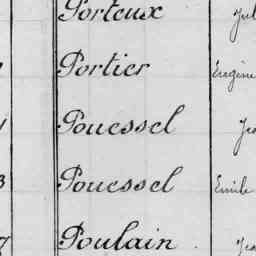 Porteux Jul
Portier Eugène
Pouessel Jea
3 Pouessel Emile
7 Poulain Jea